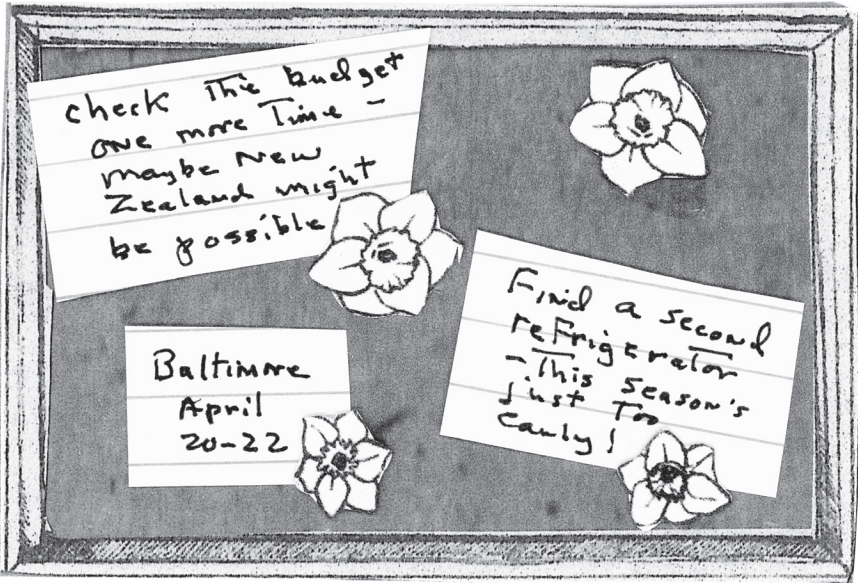 check the budget
one more Time -
maybe New
Zealand might
be possible
Baltimore
April
20-22
Find a second
refrigerator
- This season's
just Too
early!